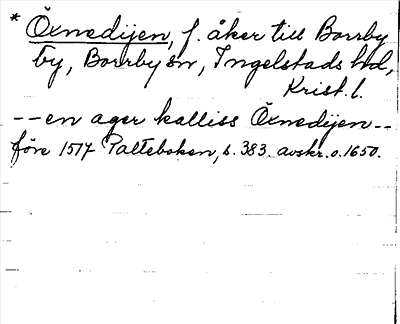 * Öxnedijen, f. åker till Borrby
by, Borrby sn, Ingelstads hd,
Krist. l.
-- en ager kalliss Öxnedijen --
före 1517 Palteboken, s. 383. avskr. o. 1650.